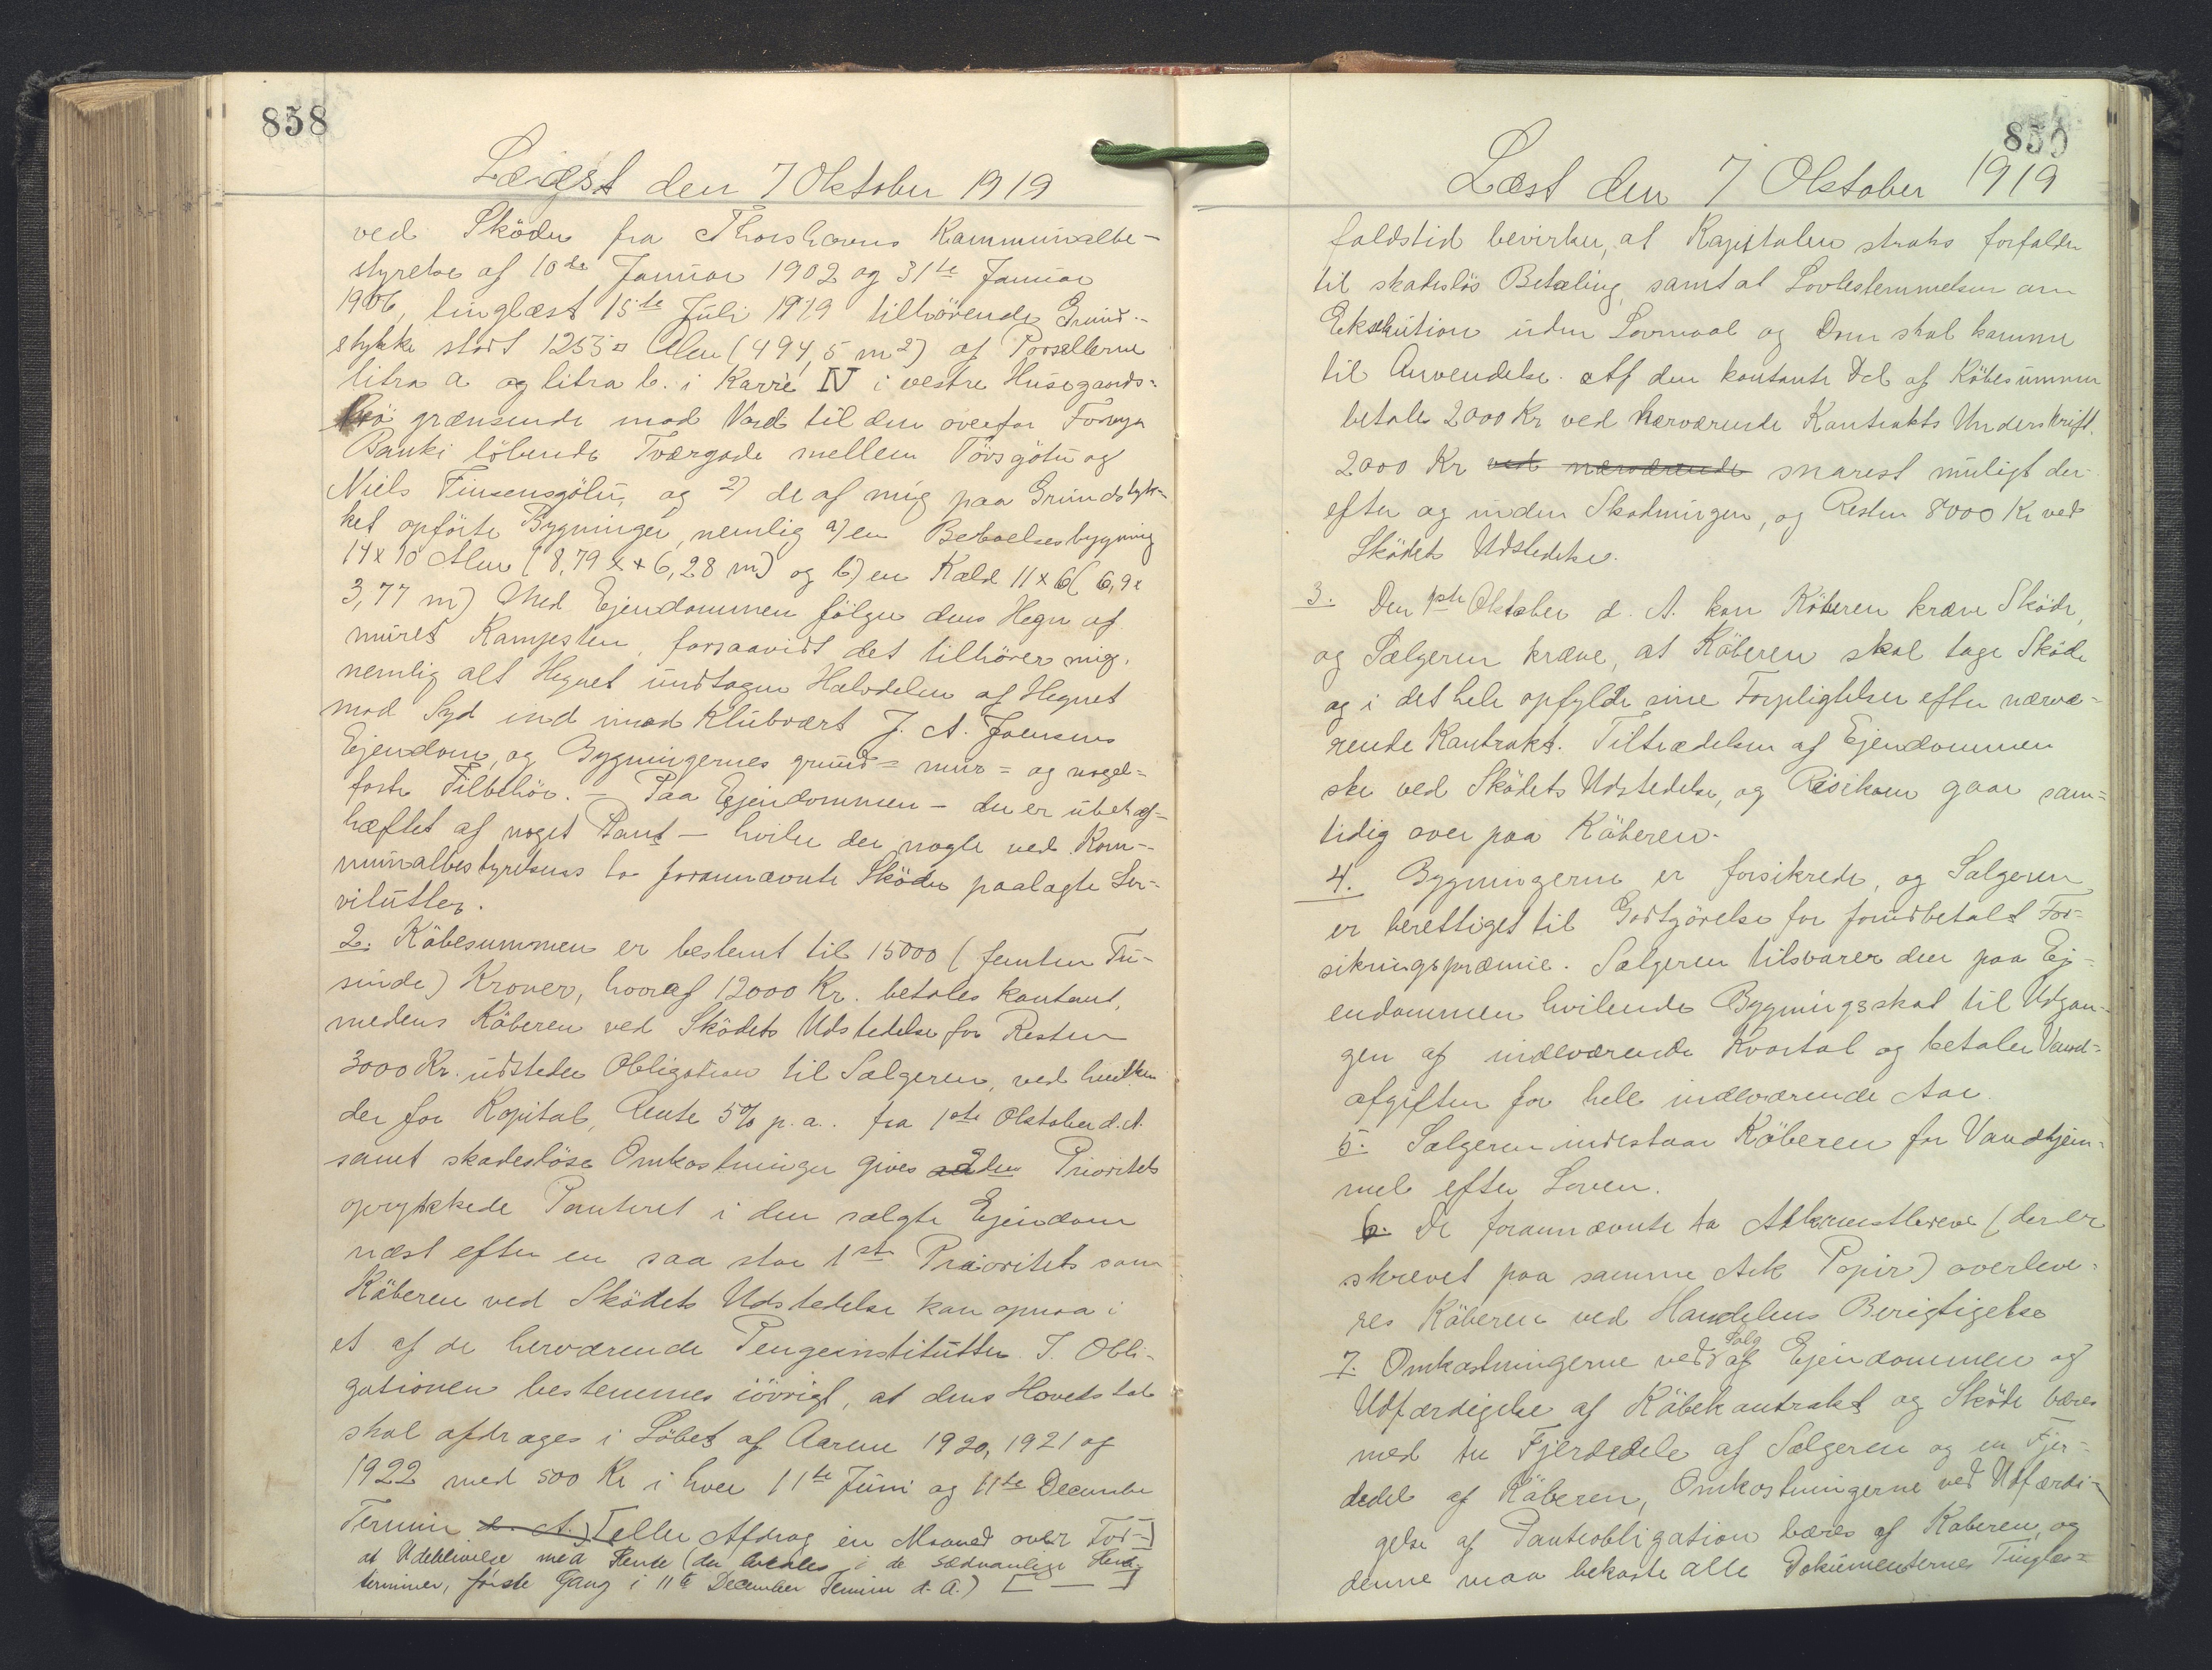 858
Læst den 7 Oktober 1919
ved Sköder fra Thorshavns Kommunalbe-
styrelse af 10de Januar 1902 og 31te Januar
1906, tinglæst 15te Juli 1919 tilhörende Grund-
stykke stort 1255 □ Alen (494,5 m2) af Parsellerne
litra a og litra b. i Karré IV i vestre Husegaards-
trö grænsende mod Nord til den overfor Foroya
Banki löbende Tværgade mellem Törsgötu og
Niels Finsensgötu, og 2) de af mig paa Grundstyk-
ket opförte Bygninger, nemlig a) en Beboelsesbygning
14 x 10 Alen (8,79 x 6,28 m) og b) en Kæld 11 x 6 (6,9 x
3,77 m) Med Ejendommen følger dens Hegn af
muret Kampesten, forsaavidt det tilhörer mig,
nemlig alt Hegnet undtagen Halvdelen af Hegnet
mod Syd ind imod Klubvært J. A. Joensens
Ejendom, og Bygningernes grund- mur- og nagel-
faste Tilbehör. - Paa Ejendommen - der er ubehæf-
hæftet af noget Pant - hviler der nogle ved Kom-
munalbestyrelsens to forannævnte Sköder paalagte Ser-
vitutter.
2. Köbesummen er bestemt til 15000 (femten Tu-
sinde) Kroner, hvoraf 12000 Kr. betales kontant,
medens Köberen ved Sködets Udstedelse for Resten
3000 Kr. udsteder Obligation til Sælgeren, ved hvilken
der for Kapital, Rente 5% p. a. fra 1ste Oktober d. A.
samt skadeslöse Omkostninger gives 2den Prioritets
oprykkede Panteret i den solgte Ejendom
næst efter en saa stor 1ste Prioritets som
Köberen ved Sködets Udstedelse kan opnaa i
et af de herværende Pengeinstitutter. I Obli-
gationen bestemmes iövrigt, at dens Hovedstol
skal afdrages i Löbet af Aarene 1920, 1921 og
1922 med 500 Kr i hver 11te Juni og 11te December
Termin d. A.) [eller Afdrag en Maaned over For-]
at Udeblivelse med Rente (der betales i de sædvanlige Rente
terminer, förste Gang i 11te December Termin d. A.) [ — ]
859
Læst den 7 Oktober 1919
faldstid bevirker, at Kapitalen straks forfalder
til skadeslös Betaling, samt at Lovbestemmelsen om
Eksekution uden Lovmaal og Dom skal komme
til Anvendelse. Af den kontante Del af Köbesummen
betales 2000 Kr ved nærværende Kontrakts Underskrift,
2000 Kr ved nærværende snarest muligt der-
efter og inden Skødningen, og Resten 8000 Kr ved
Sködets Udstedelse.
3. Den 1ste Oktober d. A. kan Köberen kræve Sköde,
og Sælgeren kræve, at Köberen skal tage Sköde
og i det hele opfylde sine Forpligtelser efter nærvæ-
rende Kontrakt. Tiltrædelsen af Ejendommen
ske ved Sködets Udstedelse, og Risikoen gaar sam-
tidig over paa Köberen.
4. Bygningerne er forsikrede, og Sælgeren
er berettiget til Godtgörelse for forudbetalt For-
sikringspræmie. Sælgeren tilsvarer den paa Ej-
endommen hvilende Bygningsskat til Udgan-
gen af indeværende Kvartal og betaler Vand-
afgiften for hele indeværende Aar.
5. Sælgeren indestaar Köberen for Vandhjem-
mel efter Loven.
6. De forannævnte to Adkomstbreve (der er
skrevet paa samme Ark Papir) overleve-
res Köberen ved Handelens Berigtigelse
7. Omkostningerne ved Salg af Ejendommen og
Udfærdigelse af Köbekontrakt og Sköde bæres
med tre Fjerdedele af Sælgeren og en Fjer-
dedel af Köberen, Omkostningerne ved Udfærdi-
gelse af Panteobligation bæres af Köberen, og
denne maa bekoste alle Dokumenternes Tinglæs-